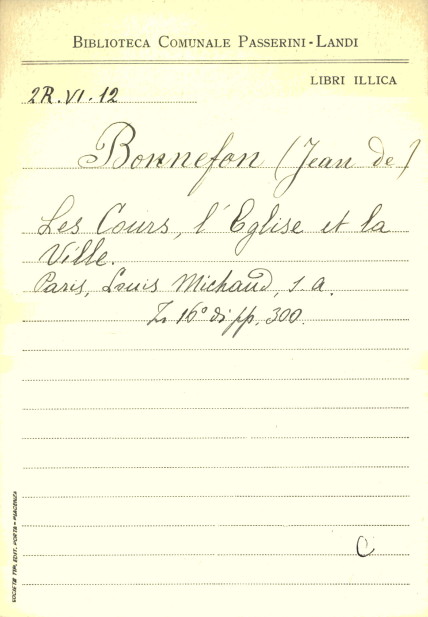 BIBLIOTECA COMUNALE PASSERINI-LANDI
LIBRI ILLICA
2R.VI.12
Bonnefon (Jean de)
Les Cours, l'Eglise et la
Ville.
Paris, Louis Michaud, s. a.
In 16° di pp. 300.
C
SOCIETÀ TIP. EDIT. PORTA - PIACENZA